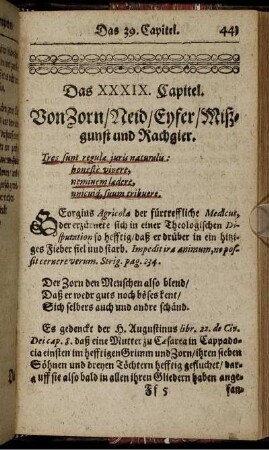 Das 39. Capitel. 441
Das XXXIX. Capitel.
Von Zorn/Neid/Eyfer/Miß⸗
gunst und Rachgier.
Tres sunt regulæ juris naturalis:
honeste vivere,
neminem lædere,
unicuiq; suum tribuere.
GEorgius Agricola der fürtreffliche Medicus,
der erzürnete sich in einer Theologischen Di-
sputation so hefftig/ daß er drüber in ein hitzi-
ges Fieber fiel und starb. Impedit ira animum, ne pos-
sit cernere verum. Strig. pag. 234.
Der Zorn den Menschen also blend/
Daß er wedr guts noch böses kent/
Sich selbers auch und andre schänd.
Es gedenckt der H. Augustinus libr. 22. de Civ.
Dei cap. 8. daß eine Mutter zu Cæsarea in Cappado-
cia einsten im hefftigen Grimm und Zorn/ ihren sieben
Söhnen und dreyen Töchtern hefftig gefluchet/ dar-
auff sie also bald in allen ihren Gliedern haben ange-
Ff 5 fan-